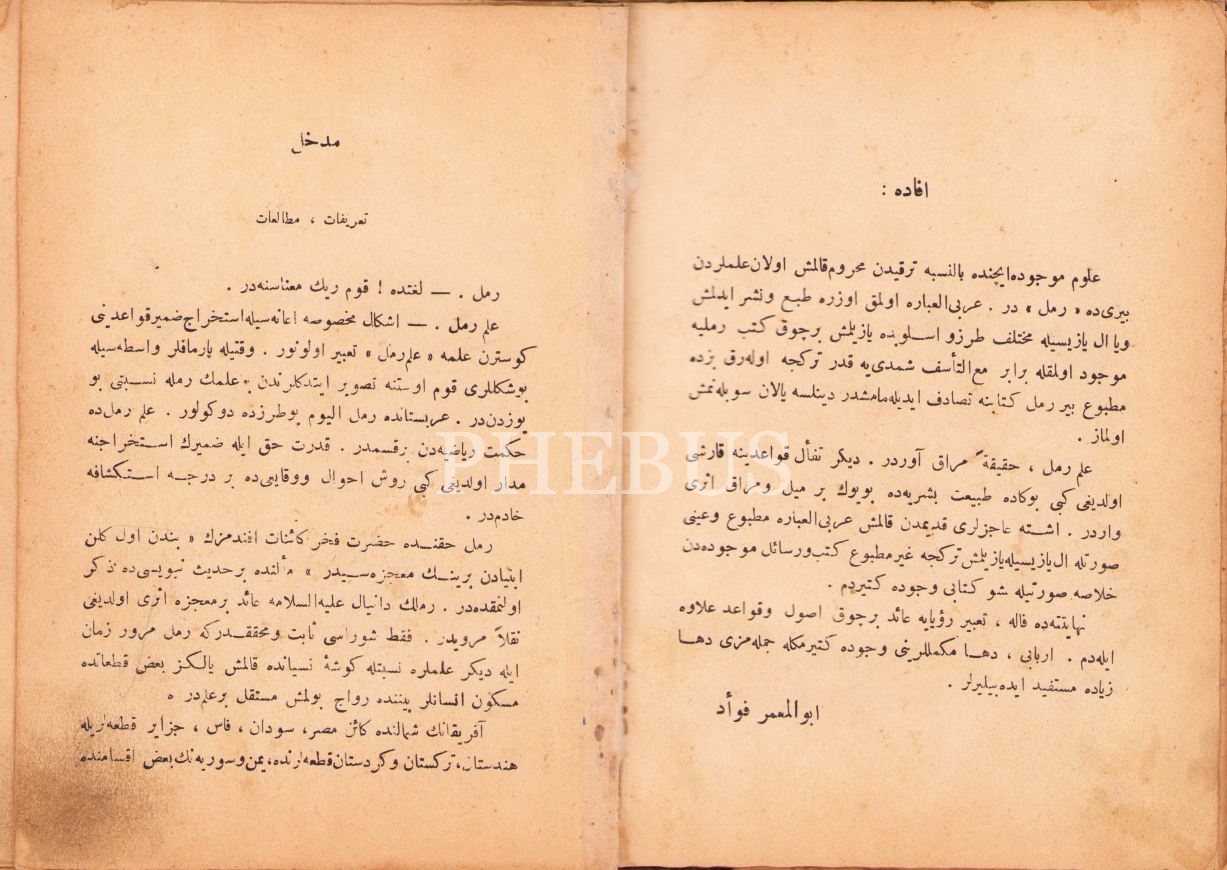 افاده :
علوم موجوده‌ایچنده بالنسبه ترقیدن محروم‌قالمش اولان‌علملردن
بیری‌ده « رمل » در . عربی‌العباره اولمق اوزره طبع ونشر ایدلمش
ویا ال یازیسیله مختلف طرز و اسلوبده یازیلمش برچوق کتب رملیه
موجود اولمقله برابر مع‌التأسف شمدی‌یه قدر ترکجه اوله‌رق بزده
مطبوع بیر رمل کتابنه تصادف ایدیله‌مامشدر دینلسه یالان سویله‌نمش
اولماز .
علم رمل ، حقیقة ً مراق آوردر . دیکر تفأل قواعدینه قارشی
اولدیغی کبی بوکاده طبیعت بشریه‌ده بویوك بر میل ومراق اثری
واردر . اشته عاجزلری قدیمدن قالمش عربی‌العباره مطبوع وعینی
صورتله ال‌یازیسیله‌یازیلمش‌ترکجه غیرمطبوع کتب‌ورسائل موجوده‌دن
خلاصه صورتیله شو کتابی وجوده کتیردم .
نهایتنده فاله ، تعبیر رؤیایه عائد برچوق اصول وقواعد علاوه
ایله‌دم . اربابی ، دها مکمللرینی وجوده کتیرمکله جمله‌مزی دها
زیاده مستفید ایده‌بیلیرلر .
ابوالمعمر فوأد
مدخل
تعریفات ، مطالعات
رمل . — لغتده ! قوم ریك معناسنه‌در .
علم رمل . — اشکال مخصوصه اعانه‌سیله‌استخراج ضمیرقواعدینی
کوسترن علمه « علم‌رمل » تعبیر اولونور . وقتیله پارماقلر واسطه‌سیله
بوشکللری قوم اوستنه تصویر ایتدکلرندن علمك رمله نسبتی بو
یوزدن‌در . عربستانده رمل الیوم بوطرزده دوکولور . علم رمل‌ده
حکمت ریاضیه‌دن برقسمدر . قدرت حق ایله ضمیرك استخراجنه
مدار اولدیغی کبی روش احوال ووقایی‌ده بر درجه استکشافه
خادم‌در .
رمل حقنده حضرت فخر کائنات افندمزك « بندن اول کلن
انبیادن برینك معجزه‌سیدر » مألنده برحدیث نبویسی‌ده ذکر
اولنمقده‌در . رملك دانیال علیه‌السلامه عائد برمعجزه اثری اولدیغی
نقلاً مرویدر . فقط شوراسی ثابت ومحققدرکه رمل مرور زمان
ایله دیکر علملره نسبتله کوشهٔ نسیانده قالمش یالکز بعض قطعاتده
مسکون انسانلر بیننده رواج بولمش مستقل برعلم‌در
آفریقانك شمالنده کائن مصر، سودان ، فاس ، جزایر قطعه‌لریله
هندستان، ترکستان وکردستان‌قطعه‌لرنده، یمن وسوریه‌نك‌بعض اقسامنده
PHEBUS